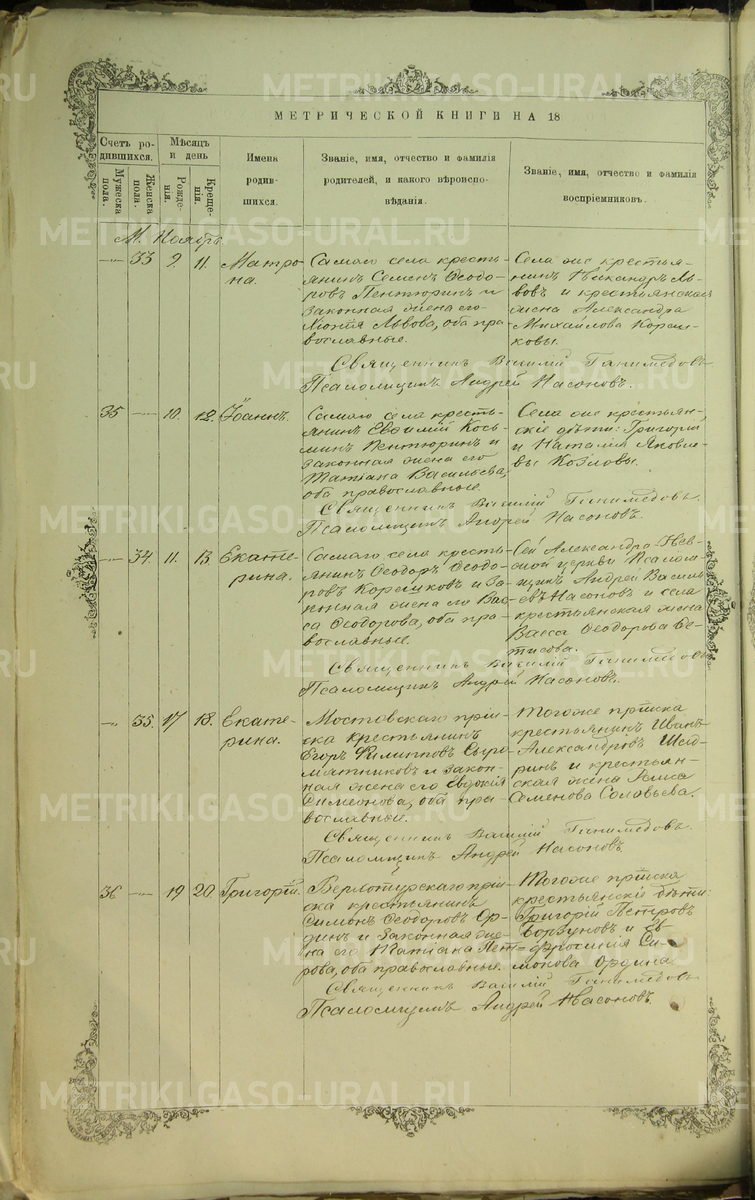 METRIKI.GASO-URAL.RU
МЕТРИЧЕСКОЙ КНИГИ НА 18
Счетъ родившихся.
Мужеска пола.
Женска пола.
Мѣсяцъ и день
Рожденія.
Крещенія.
Имена родившихся.
Званіе, имя, отчество и фамилія родителей, и какого вѣроисповѣданія.
Званіе, имя, отчество и фамилія воспріемниковъ.
М. Ноябрь
33 9. 11. Матрона.
Самаго села кресть-
янинъ Семенъ Ѳеодо-
ровъ Пентюринъ и
законная жена его
Львова, оба пра-
вославные.
Села сие крестья-
нинъ Ль-
вовъ и крестьянская
жена Александра
Михайлова Корем-
ковы.
Священникъ Василій Ганимедовъ
Псаломщикъ Андрей Насоновъ.
35 10. 12. Іоаннъ.
Самаго села кресть-
янинъ Евѳимій Кось-
минъ Пентюринъ и
законная жена его
Татіана Васильева,
оба православные.
Села сие крестьян-
скіе дѣти: Григорій
и Наталія Яковле-
вы Козловы.
Священникъ Василій Ганимедовъ.
Псаломщикъ Андрей Насоновъ.
34. 11. 13 Екате-
рина.
Самаго села кресть-
янинъ Ѳеодоръ Ѳеодо-
ровъ и за-
конная жена его Вас-
са Ѳеодорова, оба пра-
вославные.
Сей Александро-Нев-
ской церкви Псалом-
щикъ Андрей Василь-
евъ Насоновъ и села
крестьянская жена
Васса Ѳеодорова
Священникъ Василій Ганимедовъ
Псаломщикъ Андрей Насоновъ.
35. 17 18. Екате-
рина.
Мостовскаго пріи-
ска крестьянинъ
Егоръ Филипповъ Сыро-
мятниковъ и закон-
ная жена его Евдокія
Симеонова, оба пра-
вославные.
Тогоже пріиска
крестьянинъ Иванъ
Александровъ
и крестьян-
ская жена
Семенова Соловьева.
Священникъ Василій Ганимедовъ.
Псаломщикъ Андрей Насоновъ
36 19 20. Григорій.
Верхотурскаго прі-
иска крестьянинъ
Симонъ Ѳеодоровъ Ор-
динъ и законная же-
на его Татіана Пет-
рова, оба православные.
Тогоже пріиска
крестьянскіе дѣти:
Григорій Петровъ
Борзуновъ и Ев-
фросинія Си-
монова Ордина
Священникъ Василій Ганимедовъ
Псаломщикъ Андрей Насоновъ